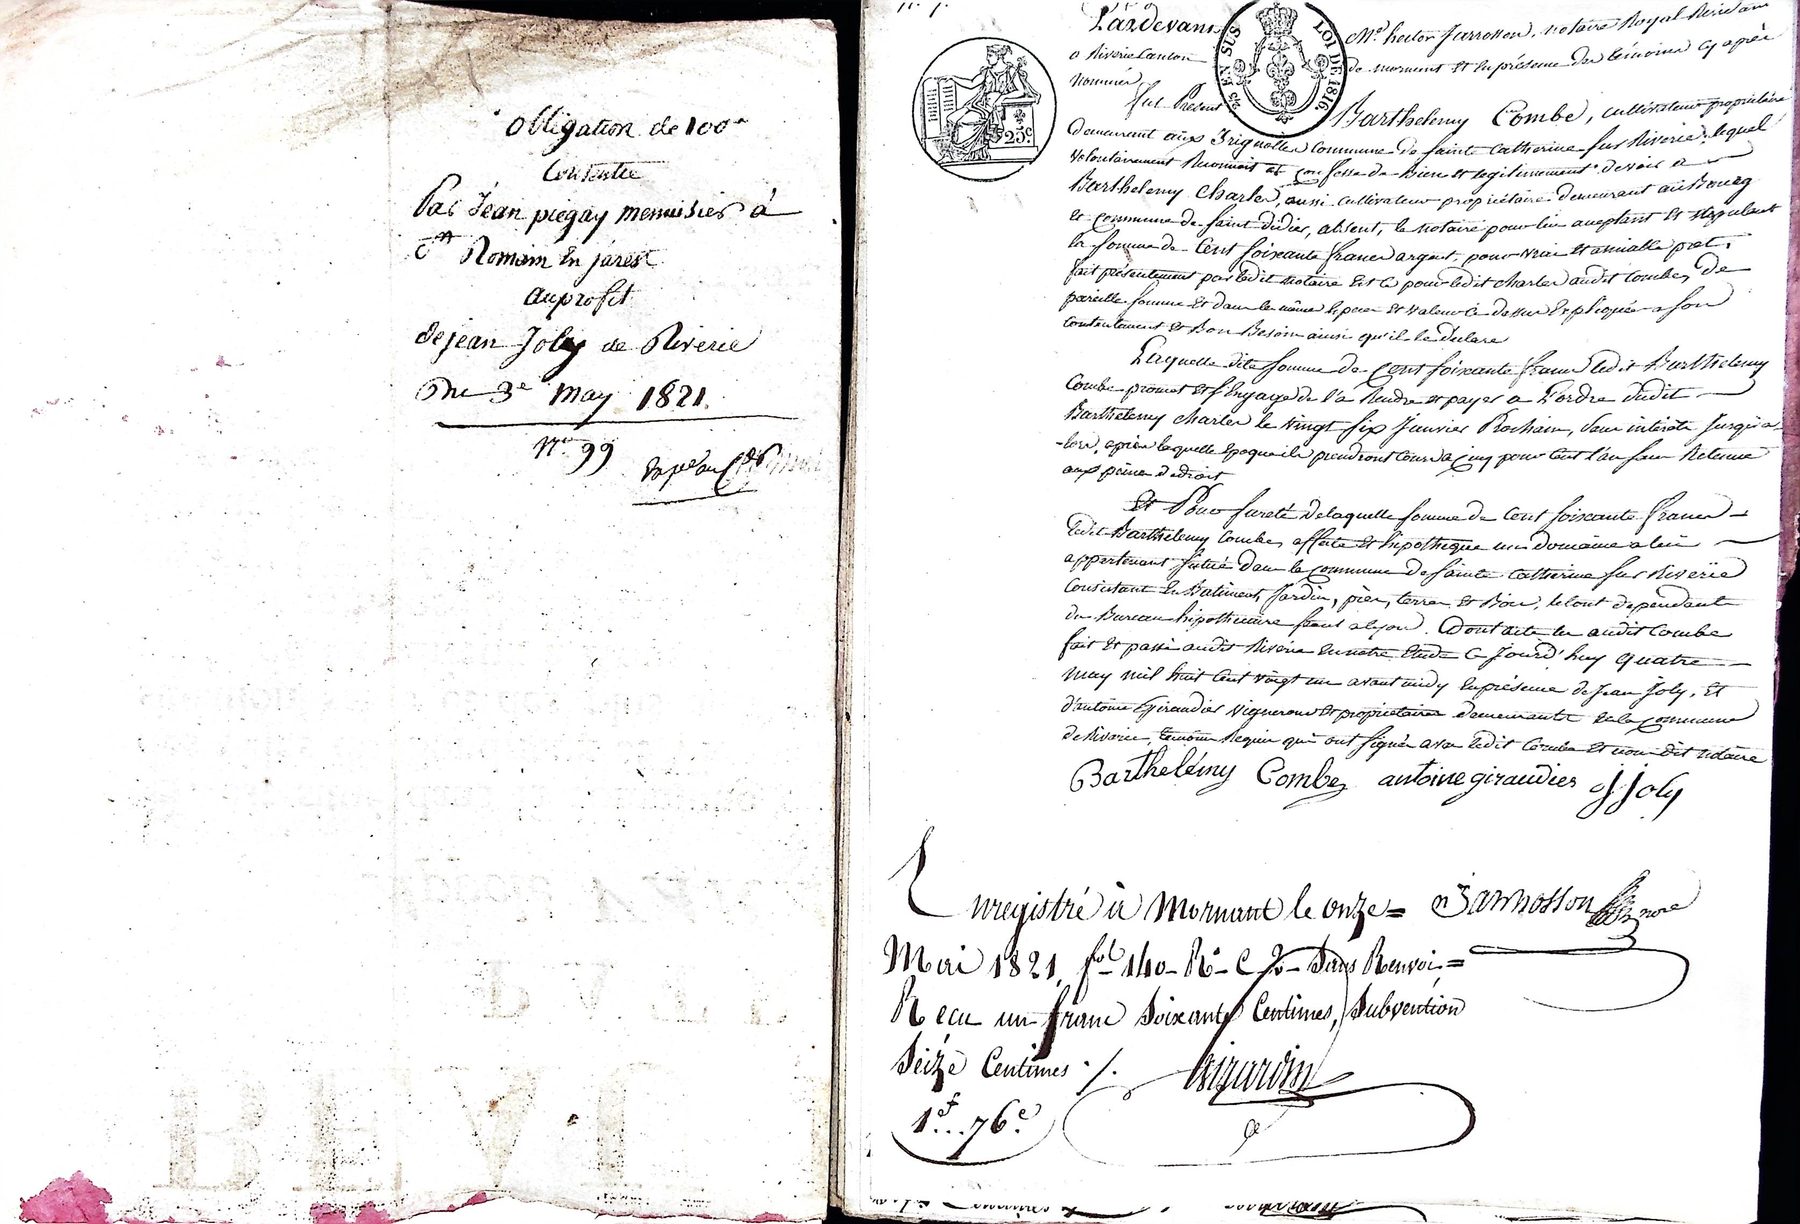 Obligation de 100
Consentie
Par Jean piegay menuisier à
St Romain En jarest
Au profit
de jean Joly de Riverie
Du 3e May 1821.
No 99
Pardevant Me hector Jarrosson, notaire Royal Residant
a Riverie canton de mornant Et En présence des témoins cy après
nommés
Fut Présent Barthelemy Combe, cultivateur propriétaire
demeurant aux commune de Sainte Catherine sur Riverie, lequel
volontairement Reconnoit et confesse de Bien et legitimement devoir a
Barthelemy Charles, aussi cultivateur propriétaire demeurant au Bourg
et commune de Saint didier, absent, le notaire pour lui acceptant et stipulant
la somme de Cent soixante francs argent, pour vrai et amiable pret,
fait présentement par ledit notaire Et ce pour ledit charles audit Combe, de
pareille somme Et dans le même Especes et valeur Ci dessus Expliquée a son
contentement et Bon Besoin ainsi qu'il le déclare
Laquelle dite somme de Cent soixante francs ledit Barthelemy
Combe promet et s'Engage de la Rendre et payer a L'ordre dudit
Barthelemy charles le vingt six Janvier Prochain, sans intérêts Jusqu'a-
-lors, après laquelle Epoque ils prendront cours a cinq pour cent l'an sans Retenue
aux peines de droit
Et Pour sureté de laquelle somme de Cent soixante francs
ledit Barthelemy Combe, affecte Et hipothèque un domaine a lui
appartenant situé dans la commune de Sainte Catherine sur Riverie
consistant En Batiment, Jardin, prés, terres Et Bois, le tout dépendant
du Bureau hipothécaire séant a Lyon. Dont acte lu audit Combe
fait Et passé audit Riverie En notre Etude Ce Jourd'huy quatre
may mil huit Cent vingt un avant midy En présence de Jean Joly, Et
d'antoine Giraudier vignerons Et propriétaires demeurants En la Commune
de Riverie, témoins Requis qui ont signés avec ledit Combe Et nous dit notaire
Barthelémy Combe antoine giraudier j joly
Enregistré à Mornant le onze = Jarrosson nore
Mai 1821, fol 140 Ro C 2 Sans Renvoi =
Reçu un franc Soixante Centimes, Subvention
Seize Centimes ./.
Girardin
1f..76c
25c
25 EN SUS
LOI DE 1816.